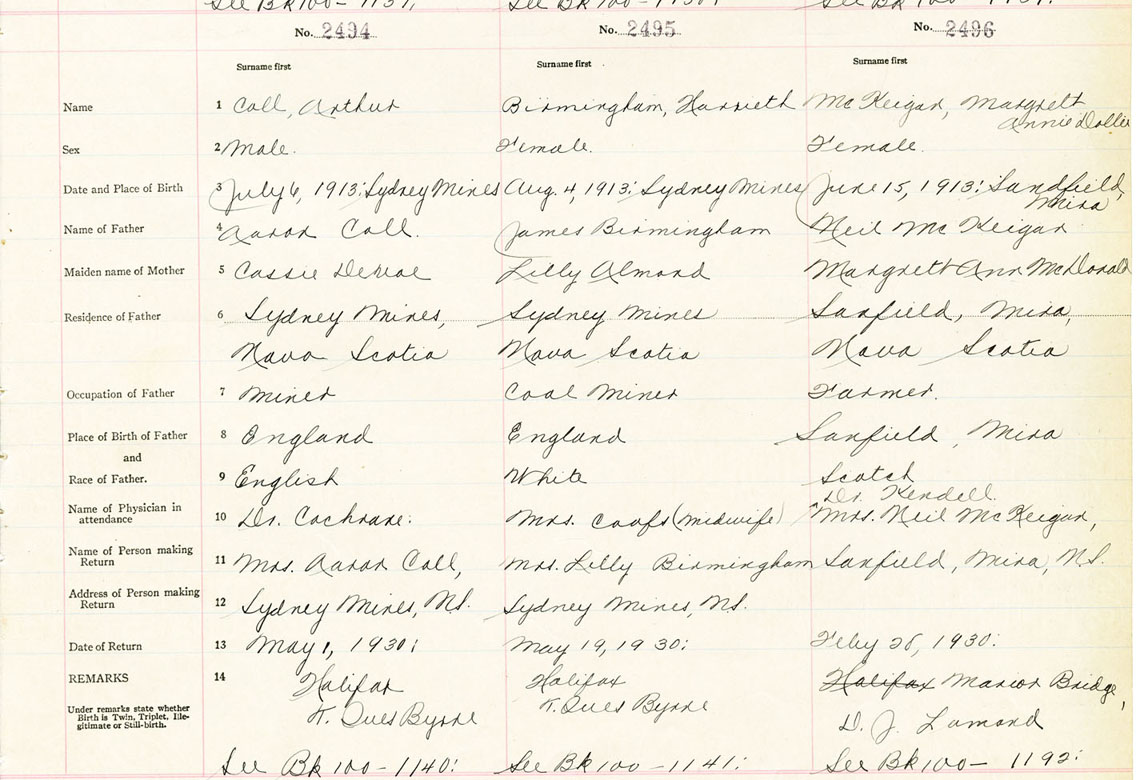 See Bk 100 - 1137, See Bk 100 - 1137. See Bk 100 - 1137.
No. 2494 No. 2495 No. 2496
Surname first Surname first Surname first
Name 1 Coll, Arthur Birmingham, Harrieth McKeigan, Margrett
Annie Dollie
Sex 2 Male. Female. Female.
Date and Place of Birth 3 July 6, 1913: Sydney Mines Aug. 4, 1913: Sydney Mines June 15, 1913: Sandfield,
Mira
Name of Father 4 Aaron Coll. James Birmingham Neil McKeigan
Maiden name of Mother 5 Cassie Lilly Almond Margrett Ann McDonald
Residence of Father 6 Sydney Mines, Sydney Mines Sanfield, Mira,
Nova Scotia Nova Scotia Nova Scotia
Occupation of Father 7 Miner Coal Miner Farmer.
Place of Birth of Father 8 England England Sanfield, Mira
and
Race of Father. 9 English White Scotch
Dr. Kendell.
Name of Physician in
attendance 10 Dr. Cochrane: Mrs. (midwife) Mrs. Neil McKeigan,
Name of Person making
Return 11 Mrs. Aaron Coll, Mrs. Lilly Birmingham Sanfield, Mira, N.S.
Address of Person making
Return 12 Sydney Mines, N.S. Sydney Mines, N.S.
Date of Return 13 May 1, 1930: May 19, 1930: Feby 28, 1930:
REMARKS 14 Halifax Halifax Halifax Marion Bridge,
Under remarks state whether
Birth is Twin, Triplet, Ille-
gitimate or Still-birth.
T. Ives Byrne T. Ives Byrne D. J. Lamond
See Bk 100 - 1140: See Bk 100 - 1141: See Bk 100 - 1192: